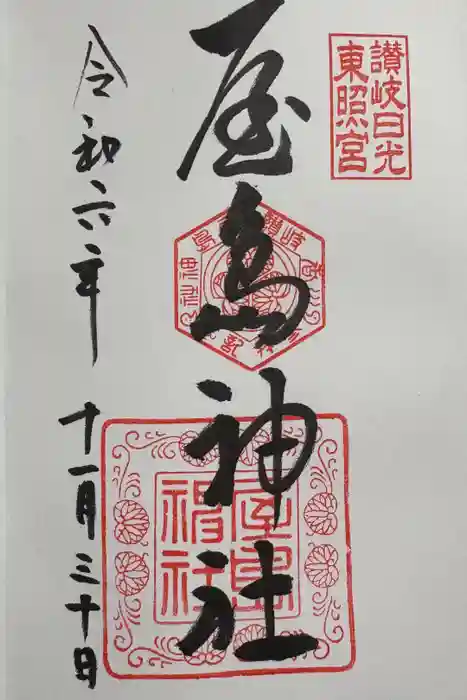 讃岐日光
東照宮
屋島神社
屋島
神社
令和六年
十一月三十日